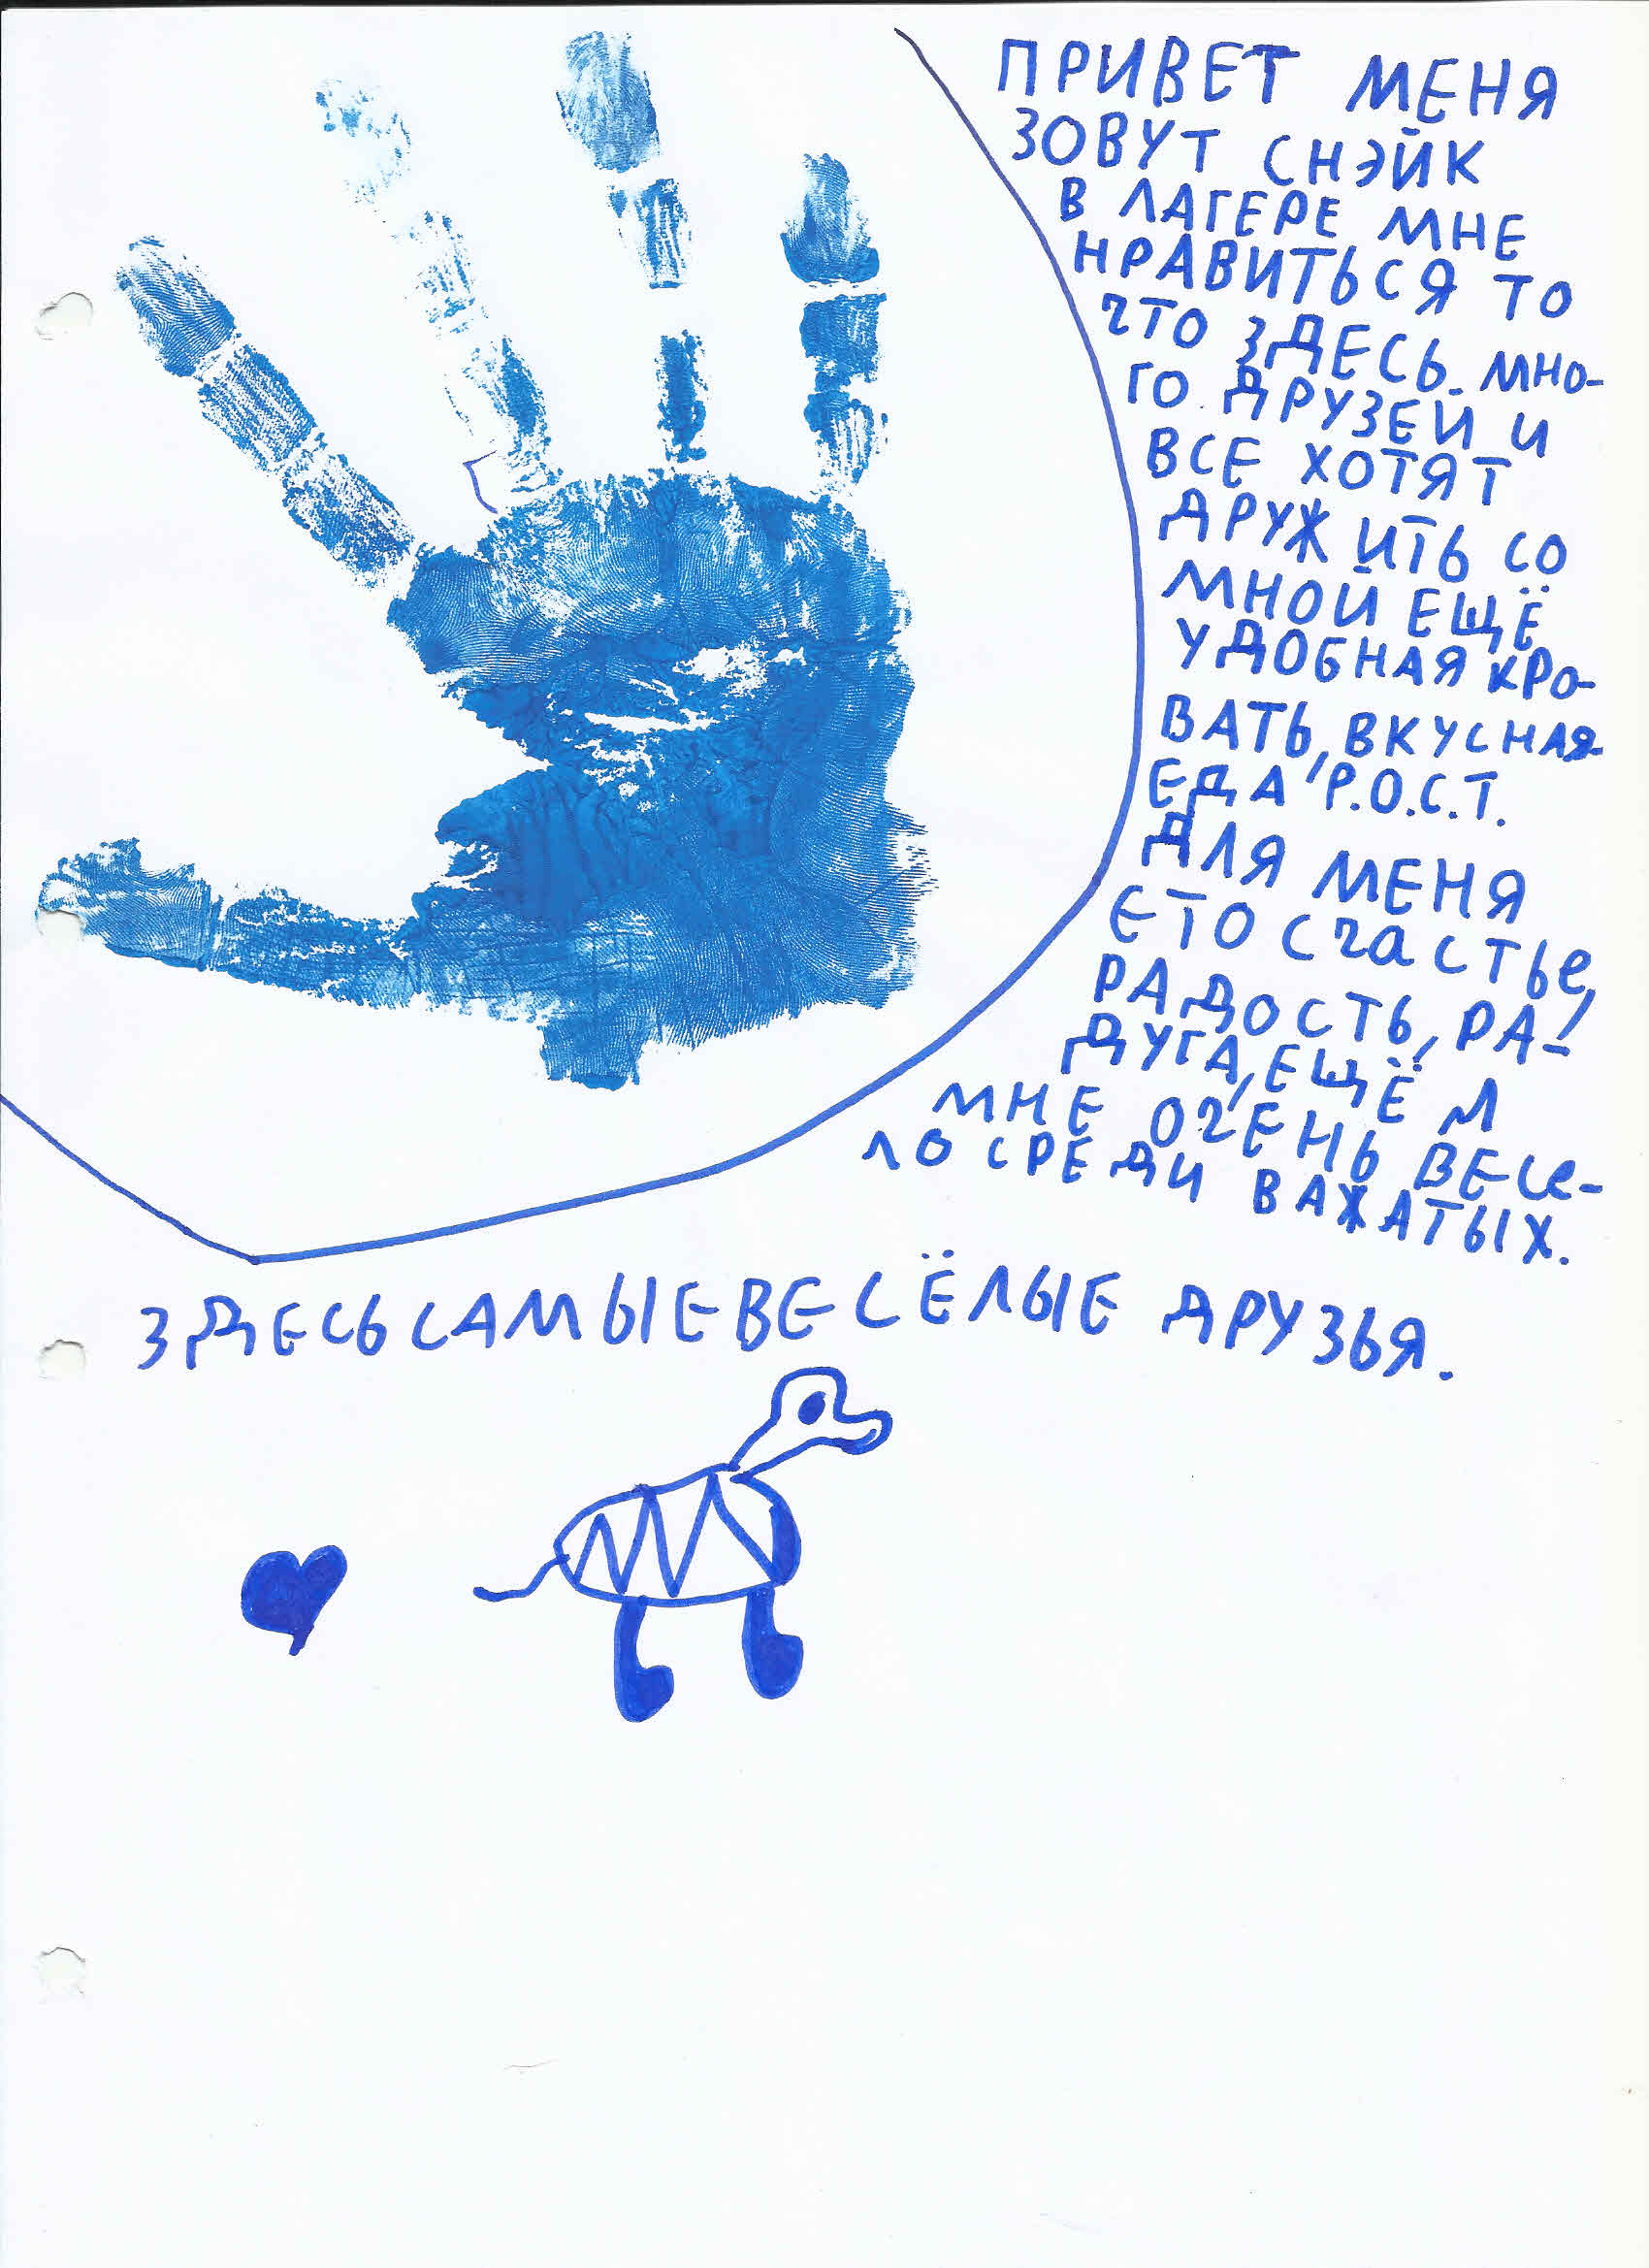 ПРИВЕТ МЕНЯ
ЗОВУТ СНЭЙК
В ЛАГЕРЕ МНЕ
НРАВИТЬСЯ ТО
ЧТО ЗДЕСЬ МНО-
ГО ДРУЗЕЙ И
ВСЕ ХОТЯТ
ДРУЖИТЬ СО
МНОЙ ЕЩЁ
УДОБНАЯ КРО-
ВАТЬ, ВКУСНАЯ
ЕДА, Р.О.С.Т.
ДЛЯ МЕНЯ
ЕТО СЧАСТЬЕ,
РАДОСТЬ, РА-
ДУГА, ЕЩЁ М
МНЕ ОЧЕНЬ ВЕСЕ-
ЛО СРЕДИ ВАЖАТЫХ.
ЗДЕСЬ САМЫЕ ВЕСЁЛЫЕ ДРУЗЬЯ.